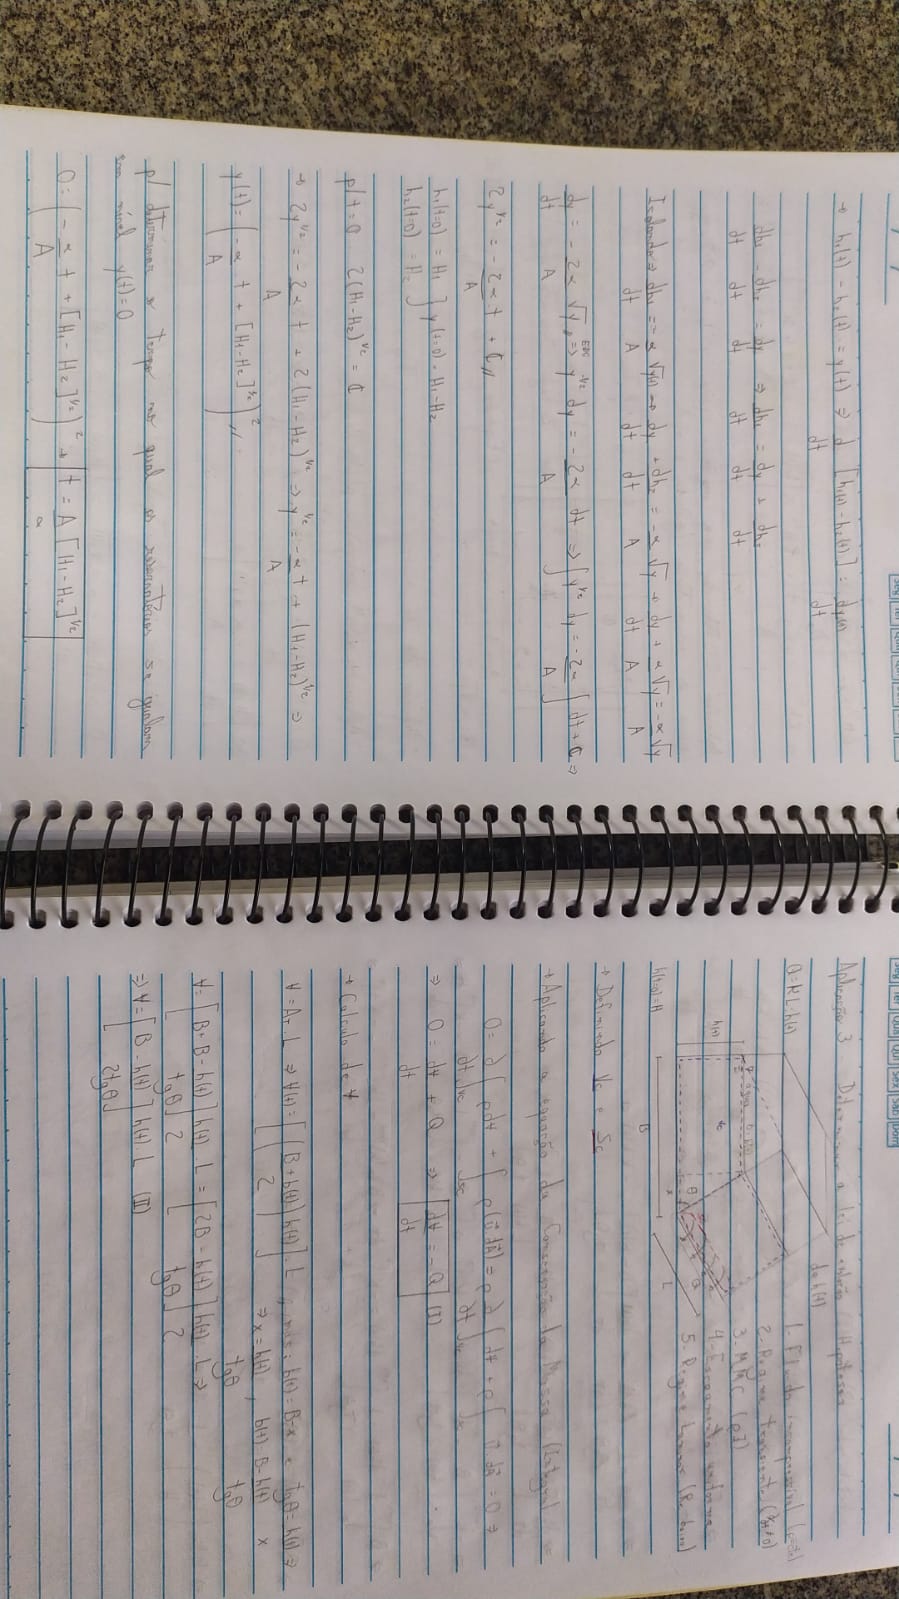 → h₁(t) - h₂(t) = y(t) ⇒ d/dt [h₁(t) - h₂(t)] = dy(t)/dt
dh₁/dt - dh₂/dt = dy/dt ⇒ dh₁/dt = dy/dt + dh₂/dt
Isolando ⇒ dh₁/dt = -α/A √y(t) → dy/dt + dh₂/dt = -α/A √y → dy/dt + α/A √y = -α/A √y
dy/dt = -2α/A √y, EDO ⇒ y^-1/2 dy = -2α/A dt ⇒ ∫ y^1/2 dy = -2α/A ∫ dt + C ⇒
2y^1/2 = -2α/A t + C,,
h₁(t=0) = H₁ } y(t=0) = H₁-H₂
h₂(t=0) = H₂
p/ t=0 2(H₁-H₂)^1/2 = C
→ 2y^1/2 = -2α/A t + 2(H₁-H₂)^1/2 ⇒ y^1/2 = -α/A t + (H₁-H₂)^1/2 ⇒
y(t) = (-α/A t + [H₁-H₂]^1/2)²,,
p/ determinar o tempo no qual os reservatórios se igualam
em nível y(t)=0
0 = (-α/A t + [H₁-H₂]^1/2)² → t = A/α [H₁-H₂]^1/2
Aplicação 3 - Determinar a lei de de h(t) Hipóteses
Q = KL·h(t)
1- Fluido incompressível
2- Regime transiente (∂/∂t ≠ 0)
3-
4- Escoamento uniforme
5- Regime
h(t=0)=H
h(t)
B
x
θ
L
Q
→ Definindo Vc e Sc
→ Aplicando a equação da Conservação da Massa (Integral) ⇒
0 = ∂/∂t ∫vc ρd∀ + ∫sc ρ(v⃗·dA⃗) = ρ ∂/∂t ∫vc d∀ + ρ ∫sc v⃗·dA⃗ = 0 ⇒
⇒ 0 = d∀/dt + Q ⇒ d∀/dt = -Q (I)
→ Calculo de ∀
∀ = A_T · L ⇒ ∀(t) = [(B + b(t))/2 h(t)] · L , mas : b(t) = B-x e tgθ = h(t)/x ⇒
⇒ x = h(t)/tgθ , b(t) = B - h(t)/tgθ
∀ = [B + B - h(t)/tgθ] h(t)/2 · L = [2B - h(t)/tgθ] h(t)/2 · L ⇒
⇒ ∀ = [B - h(t)/2tgθ] h(t) · L (II)